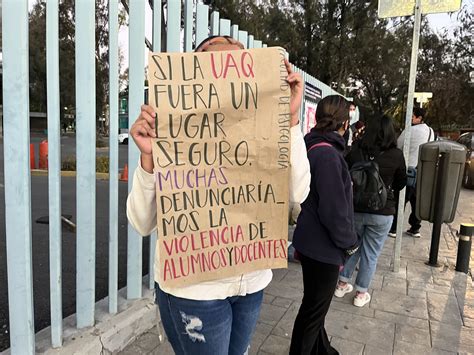 SI LA UAQ
FUERA UN
LUGAR
SEGURO.
MUCHAS
DENUNCIARÍA_
MOS LA
VIOLENCIA DE
ALUMNOS Y DOCENTES